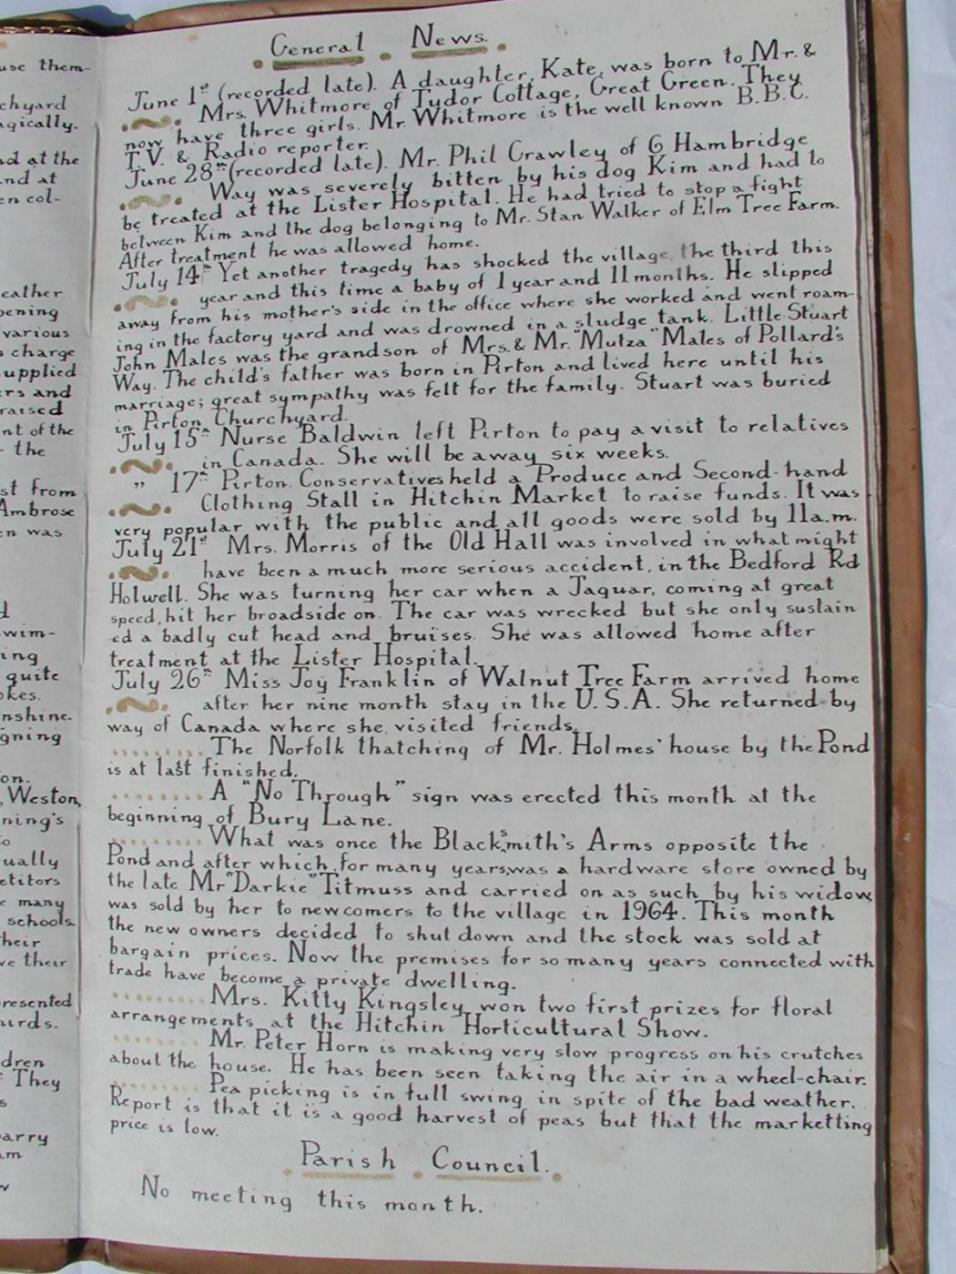 use them-
chyard
agically.
nd at the
and at
en col-
eather
pening
various
s charge
supplied
ers and
raised
nt of the
- the
st from
Ambrose
en was
d
swim-
ing
quite
okes.
nshine.
gning
on.
, Weston,
ning's
to
ually
etitors
e many
schools.
heir
ve their
resented
hirds.
dren
They
s
arry
am
w
General News.
June 1st (recorded late). A daughter, Kate, was born to Mr. &
Mrs. Whitmore of Tudor Cottage, Great Green. They
now have three girls. Mr. Whitmore is the well known B.B.C.
T.V. & Radio reporter.
June 28th (recorded late). Mr. Phil Crawley of 6 Hambridge
Way was severely bitten by his dog Kim and had to
be treated at the Lister Hospital. He had tried to stop a fight
between Kim and the dog belonging to Mr. Stan Walker of Elm Tree Farm.
After treatment he was allowed home.
July 14th Yet another tragedy has shocked the village, the third this
year and this time a baby of 1 year and 11 months. He slipped
away from his mother's side in the office where she worked and went roam-
ing in the factory yard and was drowned in a sludge tank. Little Stuart
John Males was the grandson of Mrs. & Mr. "Mulza" Males of Pollard's
Way. The child's father was born in Pirton and lived here until his
marriage; great sympathy was felt for the family. Stuart was buried
in Pirton Churchyard.
July 15th Nurse Baldwin left Pirton to pay a visit to relatives
in Canada. She will be away six weeks.
" 17th Pirton Conservatives held a Produce and Second-hand
Clothing Stall in Hitchin Market to raise funds. It was
very popular with the public and all goods were sold by 11a.m.
July 21st Mrs. Morris of the Old Hall was involved in what might
have been a much more serious accident, in the Bedford Rd
Holwell. She was turning her car when a Jaguar, coming at great
speed, hit her broadside on. The car was wrecked but she only sustain
ed a badly cut head and bruises. She was allowed home after
treatment at the Lister Hospital.
July 26th Miss Joy Franklin of Walnut Tree Farm arrived home
after her nine month stay in the U.S.A. She returned by
way of Canada where she visited friends.
........ The Norfolk thatching of Mr. Holmes' house by the Pond
is at last finished.
........ A "No Through" sign was erected this month at the
beginning of Bury Lane.
........ What was once the Blacksmith's Arms opposite the
Pond and after which, for many years, was a hardware store owned by
the late Mr "Darkie" Titmuss and carried on as such by his widow,
was sold by her to newcomers to the village in 1964. This month
the new owners decided to shut down and the stock was sold at
bargain prices. Now the premises for so many years connected with
trade have become a private dwelling.
........ Mrs. Kitty Kingsley won two first prizes for floral
arrangements at the Hitchin Horticultural Show.
........ Mr. Peter Horn is making very slow progress on his crutches
about the house. He has been seen taking the air in a wheel-chair.
........ Pea picking is in full swing in spite of the bad weather.
Report is that it is a good harvest of peas but that the marketting
price is low.
Parish Council.
No meeting this month.